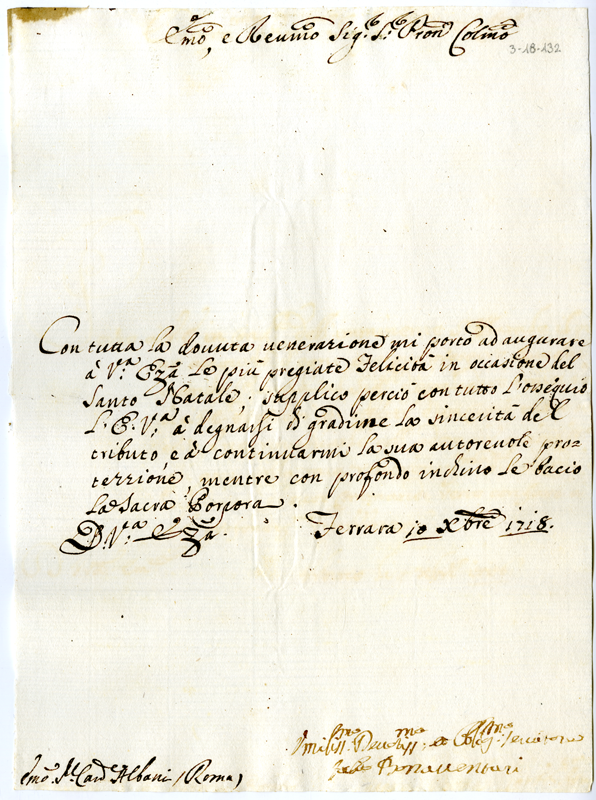 Emõ, e Reumõ Sig.r S.r Pron Colmõ
3-18-132
Con tutta la douuta uenerazione mi porto ad augurare
à V.ra Ezã le più pregiate Felicità in occasione del
Santo Natale; supplico perciò con tutto l'ossequio
L'E. V.ra à degnarsi di gradirne la sincerità del
tributo, e à continuarmi la sua autoreuole pro=
tezzione, mentre con profondo inchino le bacio
la Sacra Porpora.
D. V.ra Ezã. Ferrara 10 Xbre 1718.
Umiliss.mo Deuotiss.mo et Obblig.mo Seruitore
Bonauenturi
Emõ S.r Card Albani (Roma)